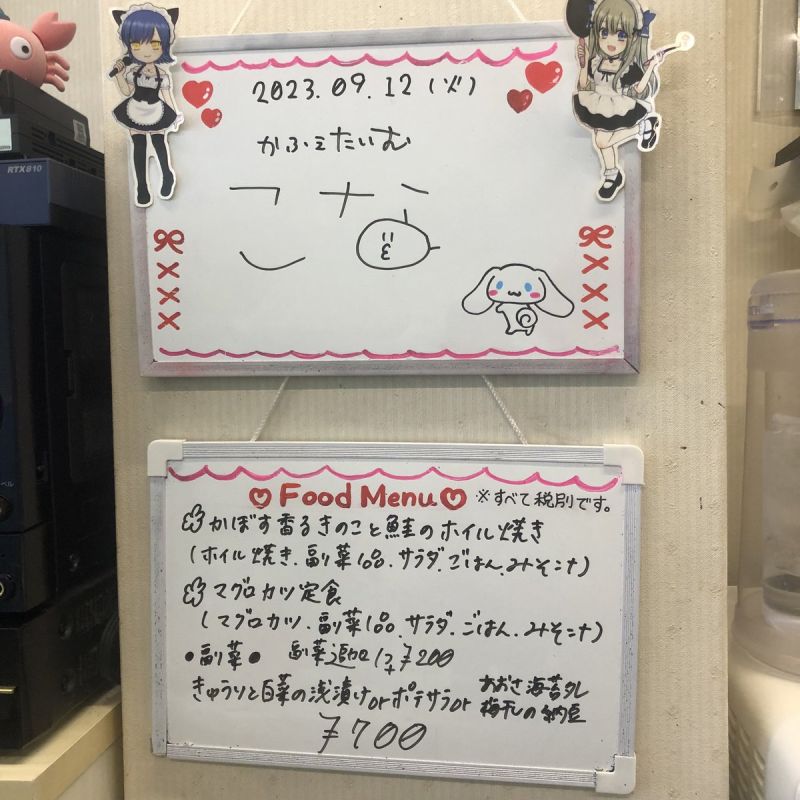 RTX810
2023.09.12(火)
かふぇたいむ
Food Menu ※すべて税別です。
かぼす香るきのこと鮭のホイル焼き
(ホイル焼き.副菜1品.サラダ.ごはん.みそ汁)
マグロカツ定食
(マグロカツ.副菜1品.サラダ.ごはん.みそ汁)
●副菜● 副菜追加1つ+¥200
きゅうりと白菜の浅漬けorポテサラor あおさ海苔と
梅干しの納豆
¥700